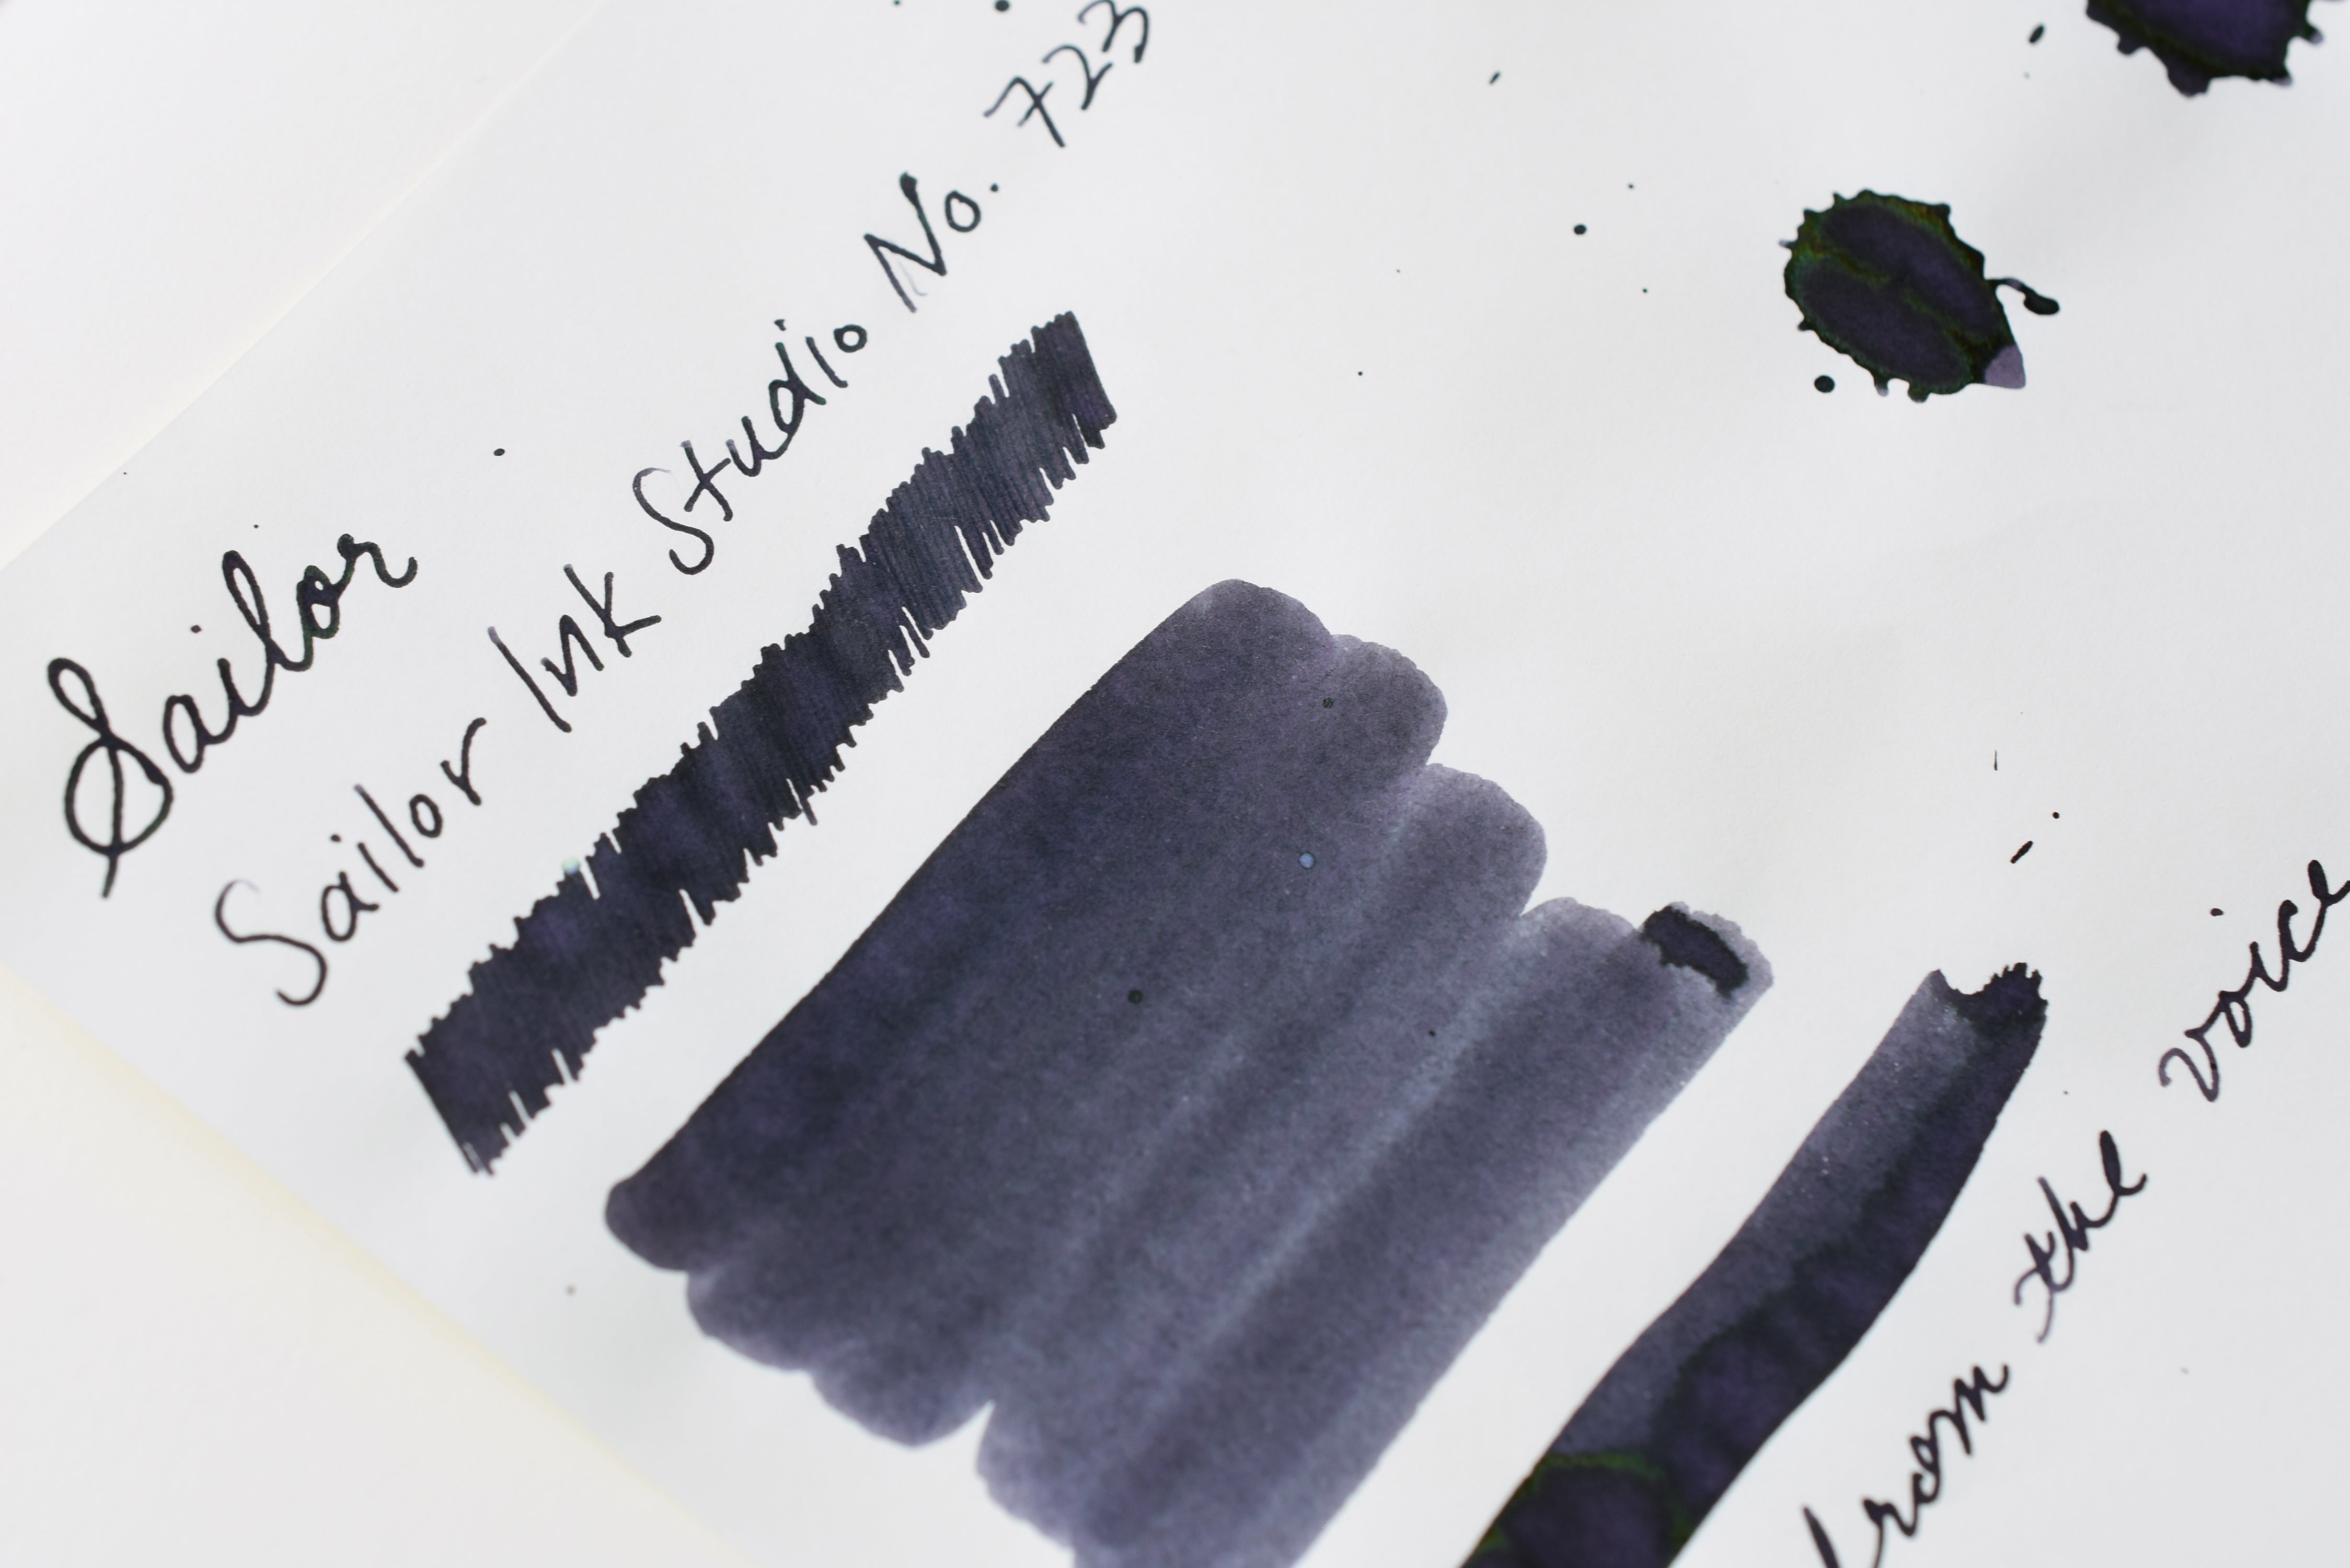 Sailor
Sailor Ink Studio No. 723
from the voice